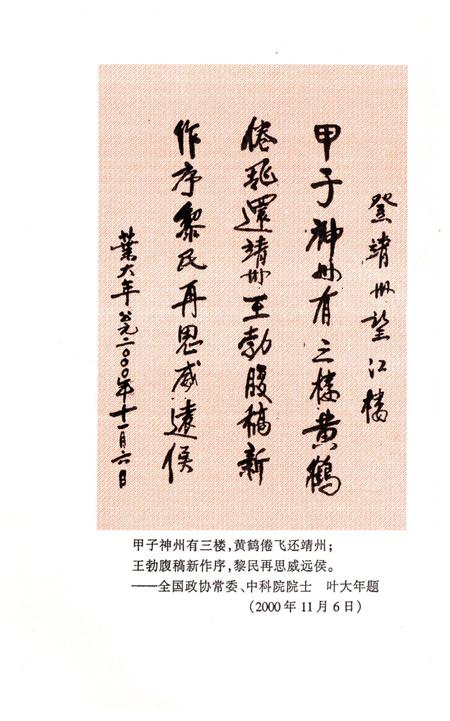 登靖州望江楼
甲子神州有三楼黄鹤
倦飞還靖州王勃腹稿新
作序黎民再思威遠侯
葉大年公元二〇〇〇年十一月六日
甲子神州有三楼,黄鹤倦飞还靖州;
王勃腹稿新作序,黎民再思威远侯。
——全国政协常委、中科院院士　叶大年题
(2000年11月6日)